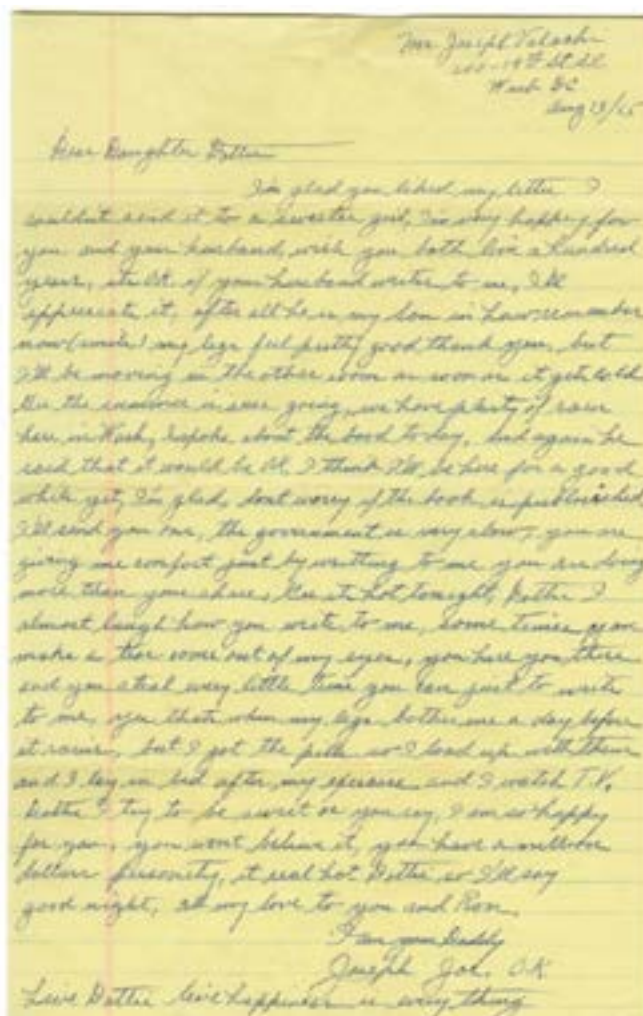 Mr. Joseph Valachi
200-19th St SE
Wash DC
Aug 23/65
Dear Daughter Dottie
I'm glad you liked my letter I
couldnt send it to a sweeter girl, I'm very happy for
you and your husband, wish you both live a hundred
years, its OK. if your husband writes to me, I'll
appreciate it, after all he is my Son in Law remember
now (smile) my legs feel pretty good thank you, but
I'll be moving in the other room as soon as it gets cold
Gee the summer is sure going, we have plenty of rain
here in Wash, I spoke about the book today, and again he
said that it would be OK, I think I'll be here for a good
while yet, I'm glad, dont worry if the book is published
I'll send you one, the government is very slow, you are
giving me comfort just by writting to me you are doing
more than your share, Gee its hot tonight, Dottie I
almost laugh how you write to me, some times you
make a tear come out of my eyes, you here you there
and you steal every little time you can just to write
to me, yes thats when my legs bother me a day before
it rains, but I got the pills so I load up with them
and I lay in bed after my exercise and I watch T.V.
Dottie I try to be sweet as you say, I am so happy
for you, you wont believe it, you have a million
dollars personity, it real hot Dottie so I'll say
good night, all my love to you and Ron,
I am your Daddy
Joseph Joe. O.K
Love Dottie love happiness is every thing